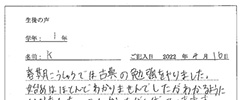 生徒の声
学年： 1 年
名前： K ご記入日 2022 年 4月 16日
春期こうしゅうでは古典の勉強をやりました。
始めはほとんどわかりませんでしたがわかるように